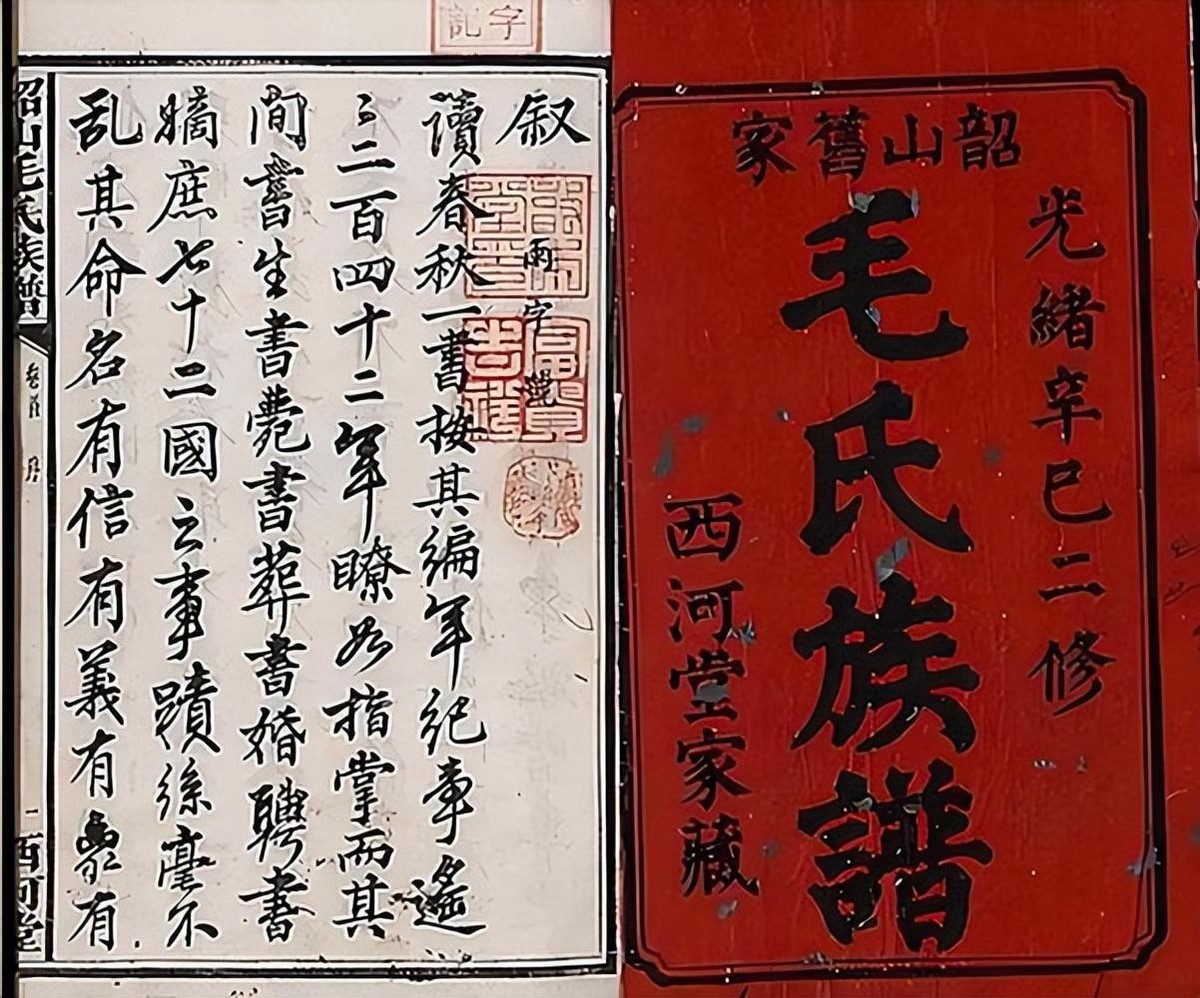 韶山舊家
光緒辛巳二修
毛氏族譜
西河堂家藏
字記
叙
雨字號
讀春秋一書按其編年紀事遙
〻二百四十二年瞭如指掌而其
間書生書薨書葬書婚書聘書
嫡庶七十二國之事蹟絲毫不
乱其命名有信有義有象有
韶山毛氏族譜
卷首
序
一
西河堂